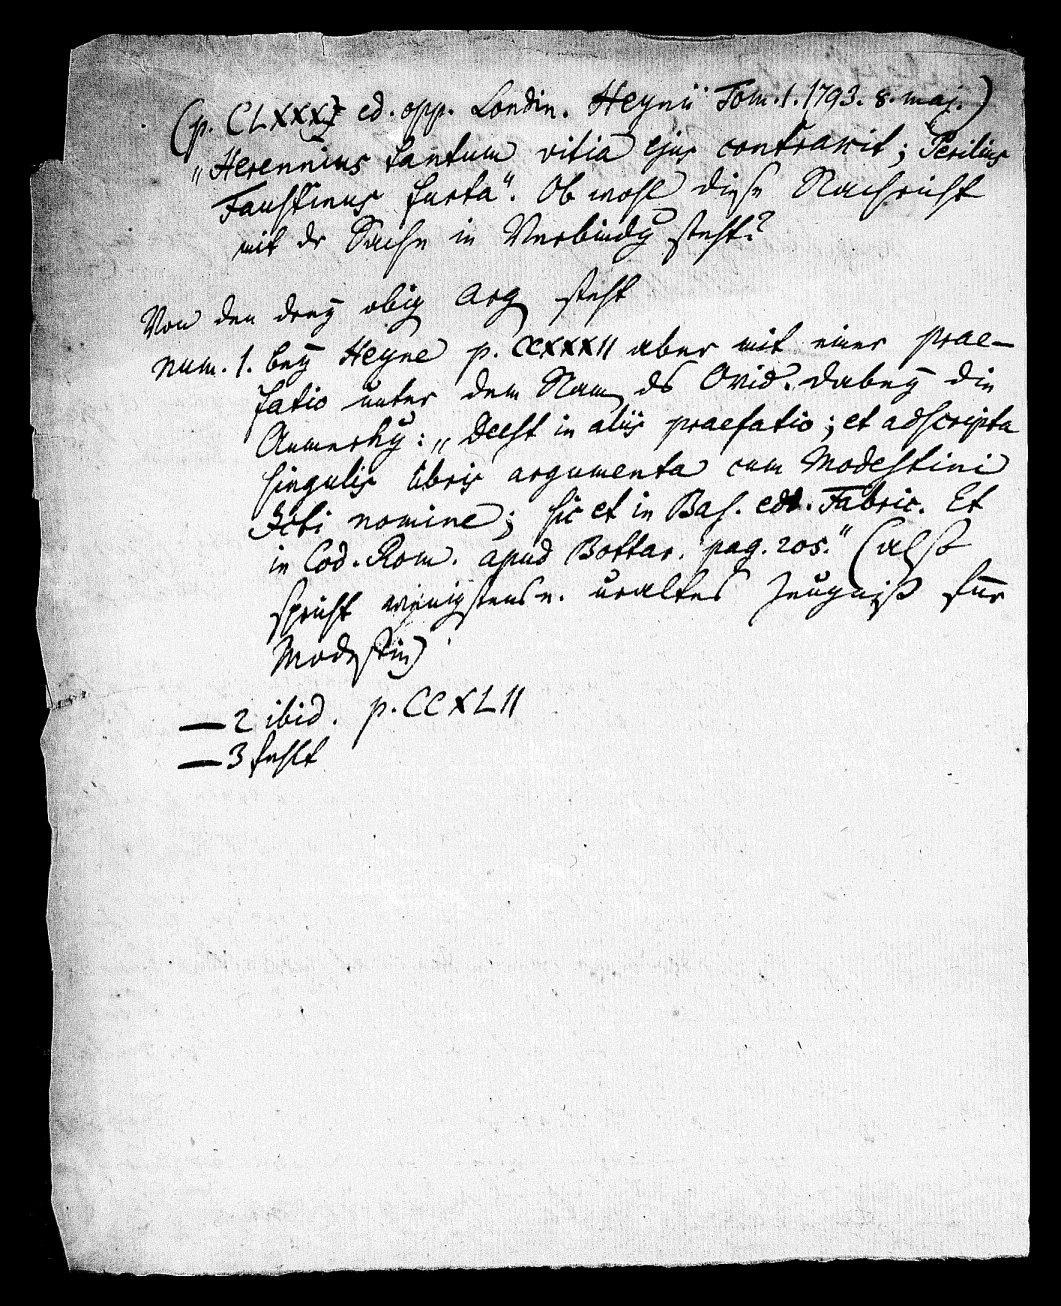 (p. CLXXXI ed. opp. Londin. Heynii Tom. 1. 1793. 8. maj.)
„Herennius tantum vitia ejus contraxit; Perilius
Faustinus furta“. Ob wohl diese Nachricht
mit dr Sache in Verbindg steht?
Von den drey obig Arg steht
num. 1. bey Heyne p. CCXXXII aber mit einer prae-
fatio unter dem Nam ds Ovid. dabey die
Anmerkg: „Deest in aliis praefatio; et adscripta
singulis libris argumenta cum Modestini
Jcti nomine; sic et in Bas. edt. Fabric. Et
in Cod. Rom. apud Bottar. pag. 205.“ (also
spricht wenigstens e. uraltes Zeugniß für
Modestin)
— 2 ibid. p. CCXLII
— 3 fehlt